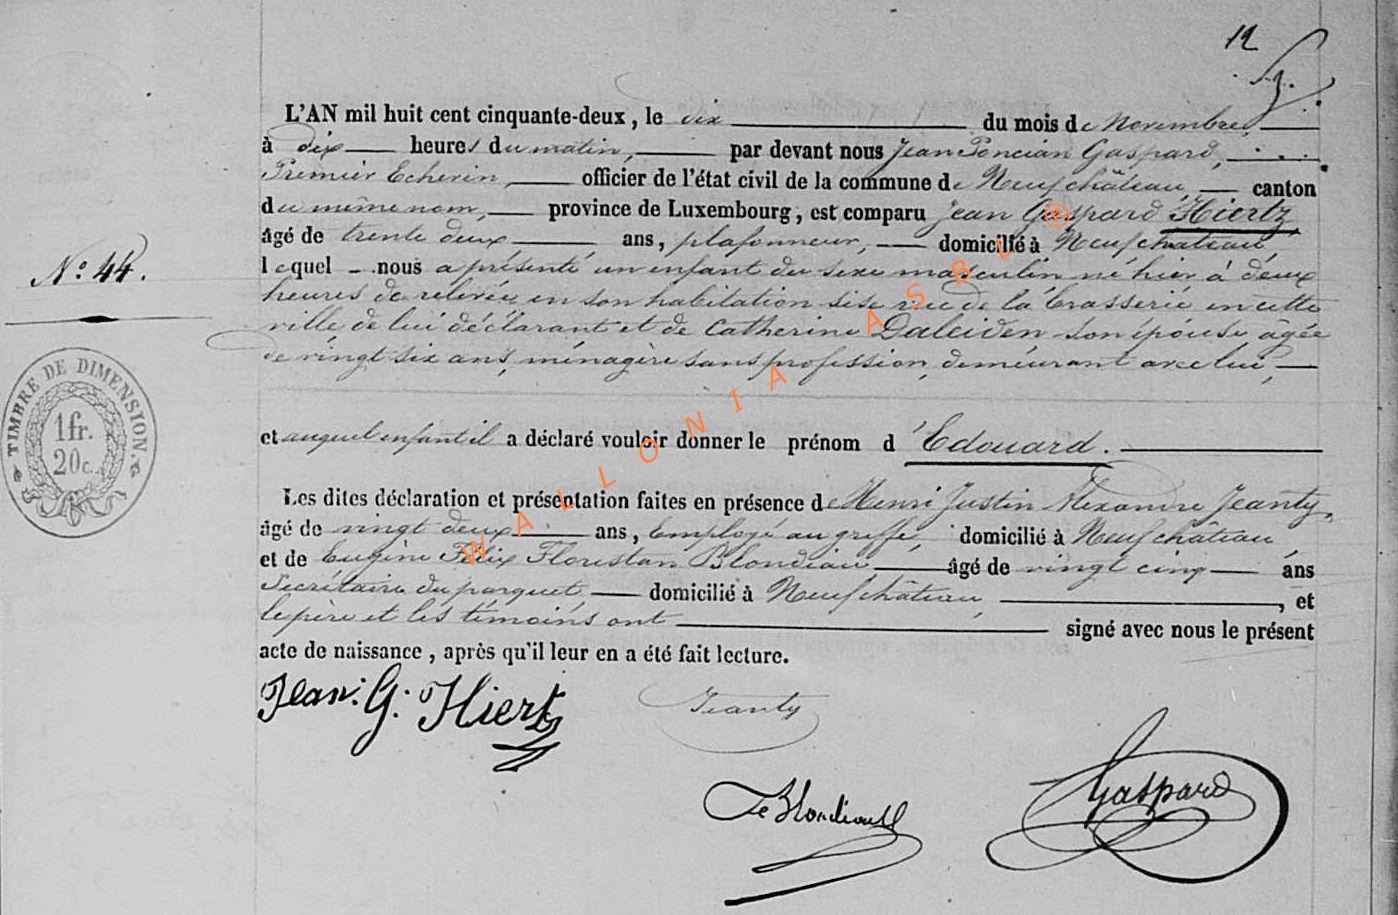 12
L'AN mil huit cent cinquante-deux, le dix du mois de Novembre,
à dix heures du matin, par devant nous Jean Poncian Gaspard,
Premier Echevin, officier de l'état civil de la commune de Neufchâteau canton
du même nom, province de Luxembourg, est comparu Jean Gaspard Hiertz
âgé de trente deux, ans, plafonneur, domicilié à Neufchateau
lequel nous a présenté un enfant du sexe masculin né hier à deux
N° 44.
heures de relevée en son habitation sise rue de la brasserie en cette
ville de lui déclarant et de Catherine Daleiden son épouse agée
de vingt six ans, ménagère sans profession, demeurant avec lui,
TIMBRE DE DIMENSION.
1fr.
20c.
et auquel enfant il a déclaré vouloir donner le prénom d'Edouard.
Les dites déclaration et présentation faites en présence de Henri Justin Alexandre Jeanty,
âgé de vingt deux ans, Employé au greffe, domicilié à Neufchâteau
et de Eugène Félix Florestan Blondiau âgé de vingt cinq ans
Secrétaire du parquet domicilié à Neufchâteau, , et
le père et les témoins ont signé avec nous le présent
acte de naissance, après qu'il leur en a été fait lecture.
Jean: G: Hiertz
Jeanty
Gaspard
WALLONIA ASBL ®